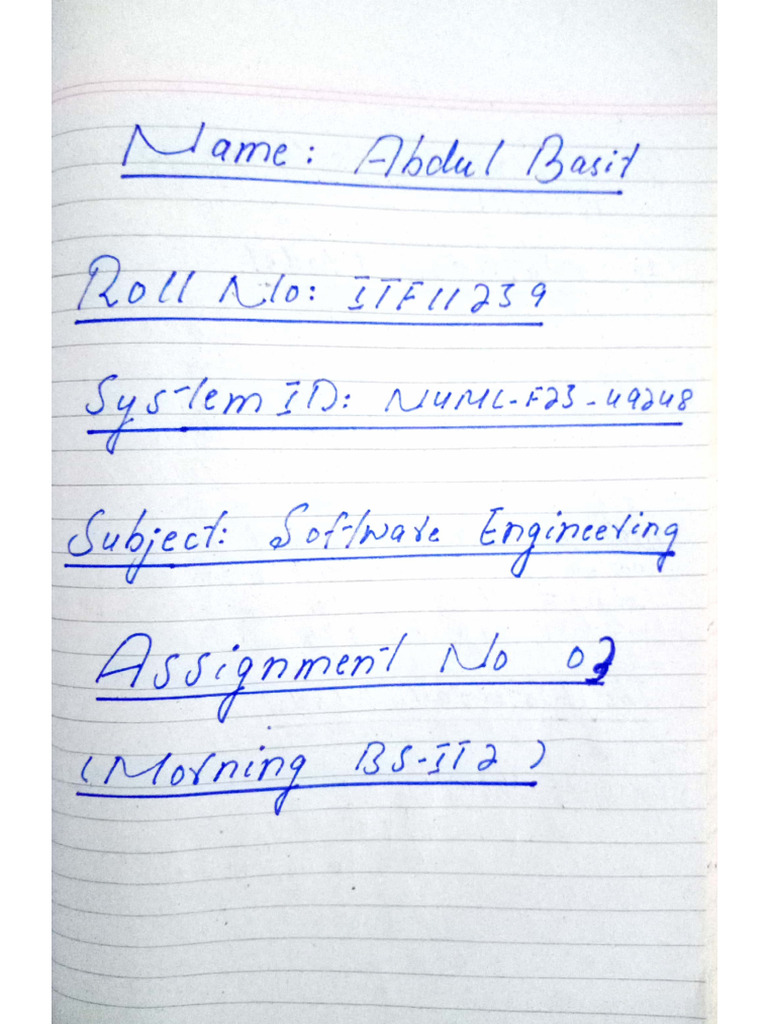 Name: Abdul Basit
Roll No: ITF11239
System ID: NUML-F23-49248
Subject: Software Engineering
Assignment No
(Morning BS-IT2)